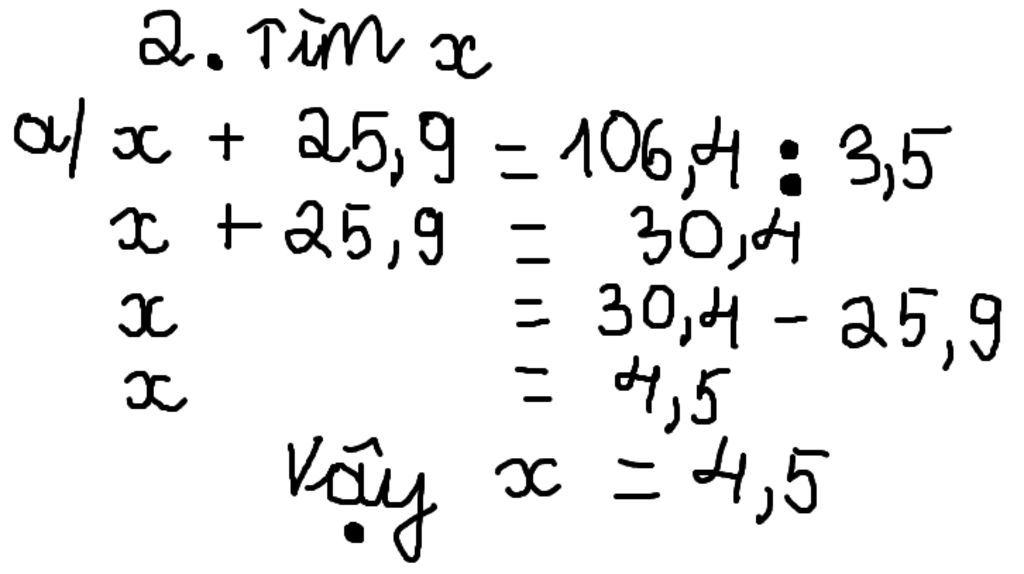 2. Tìm x
a/ x + 25,9 = 106,4 : 3,5
x + 25,9 = 30,4
x = 30,4 - 25,9
x = 4,5
Vậy x = 4,5